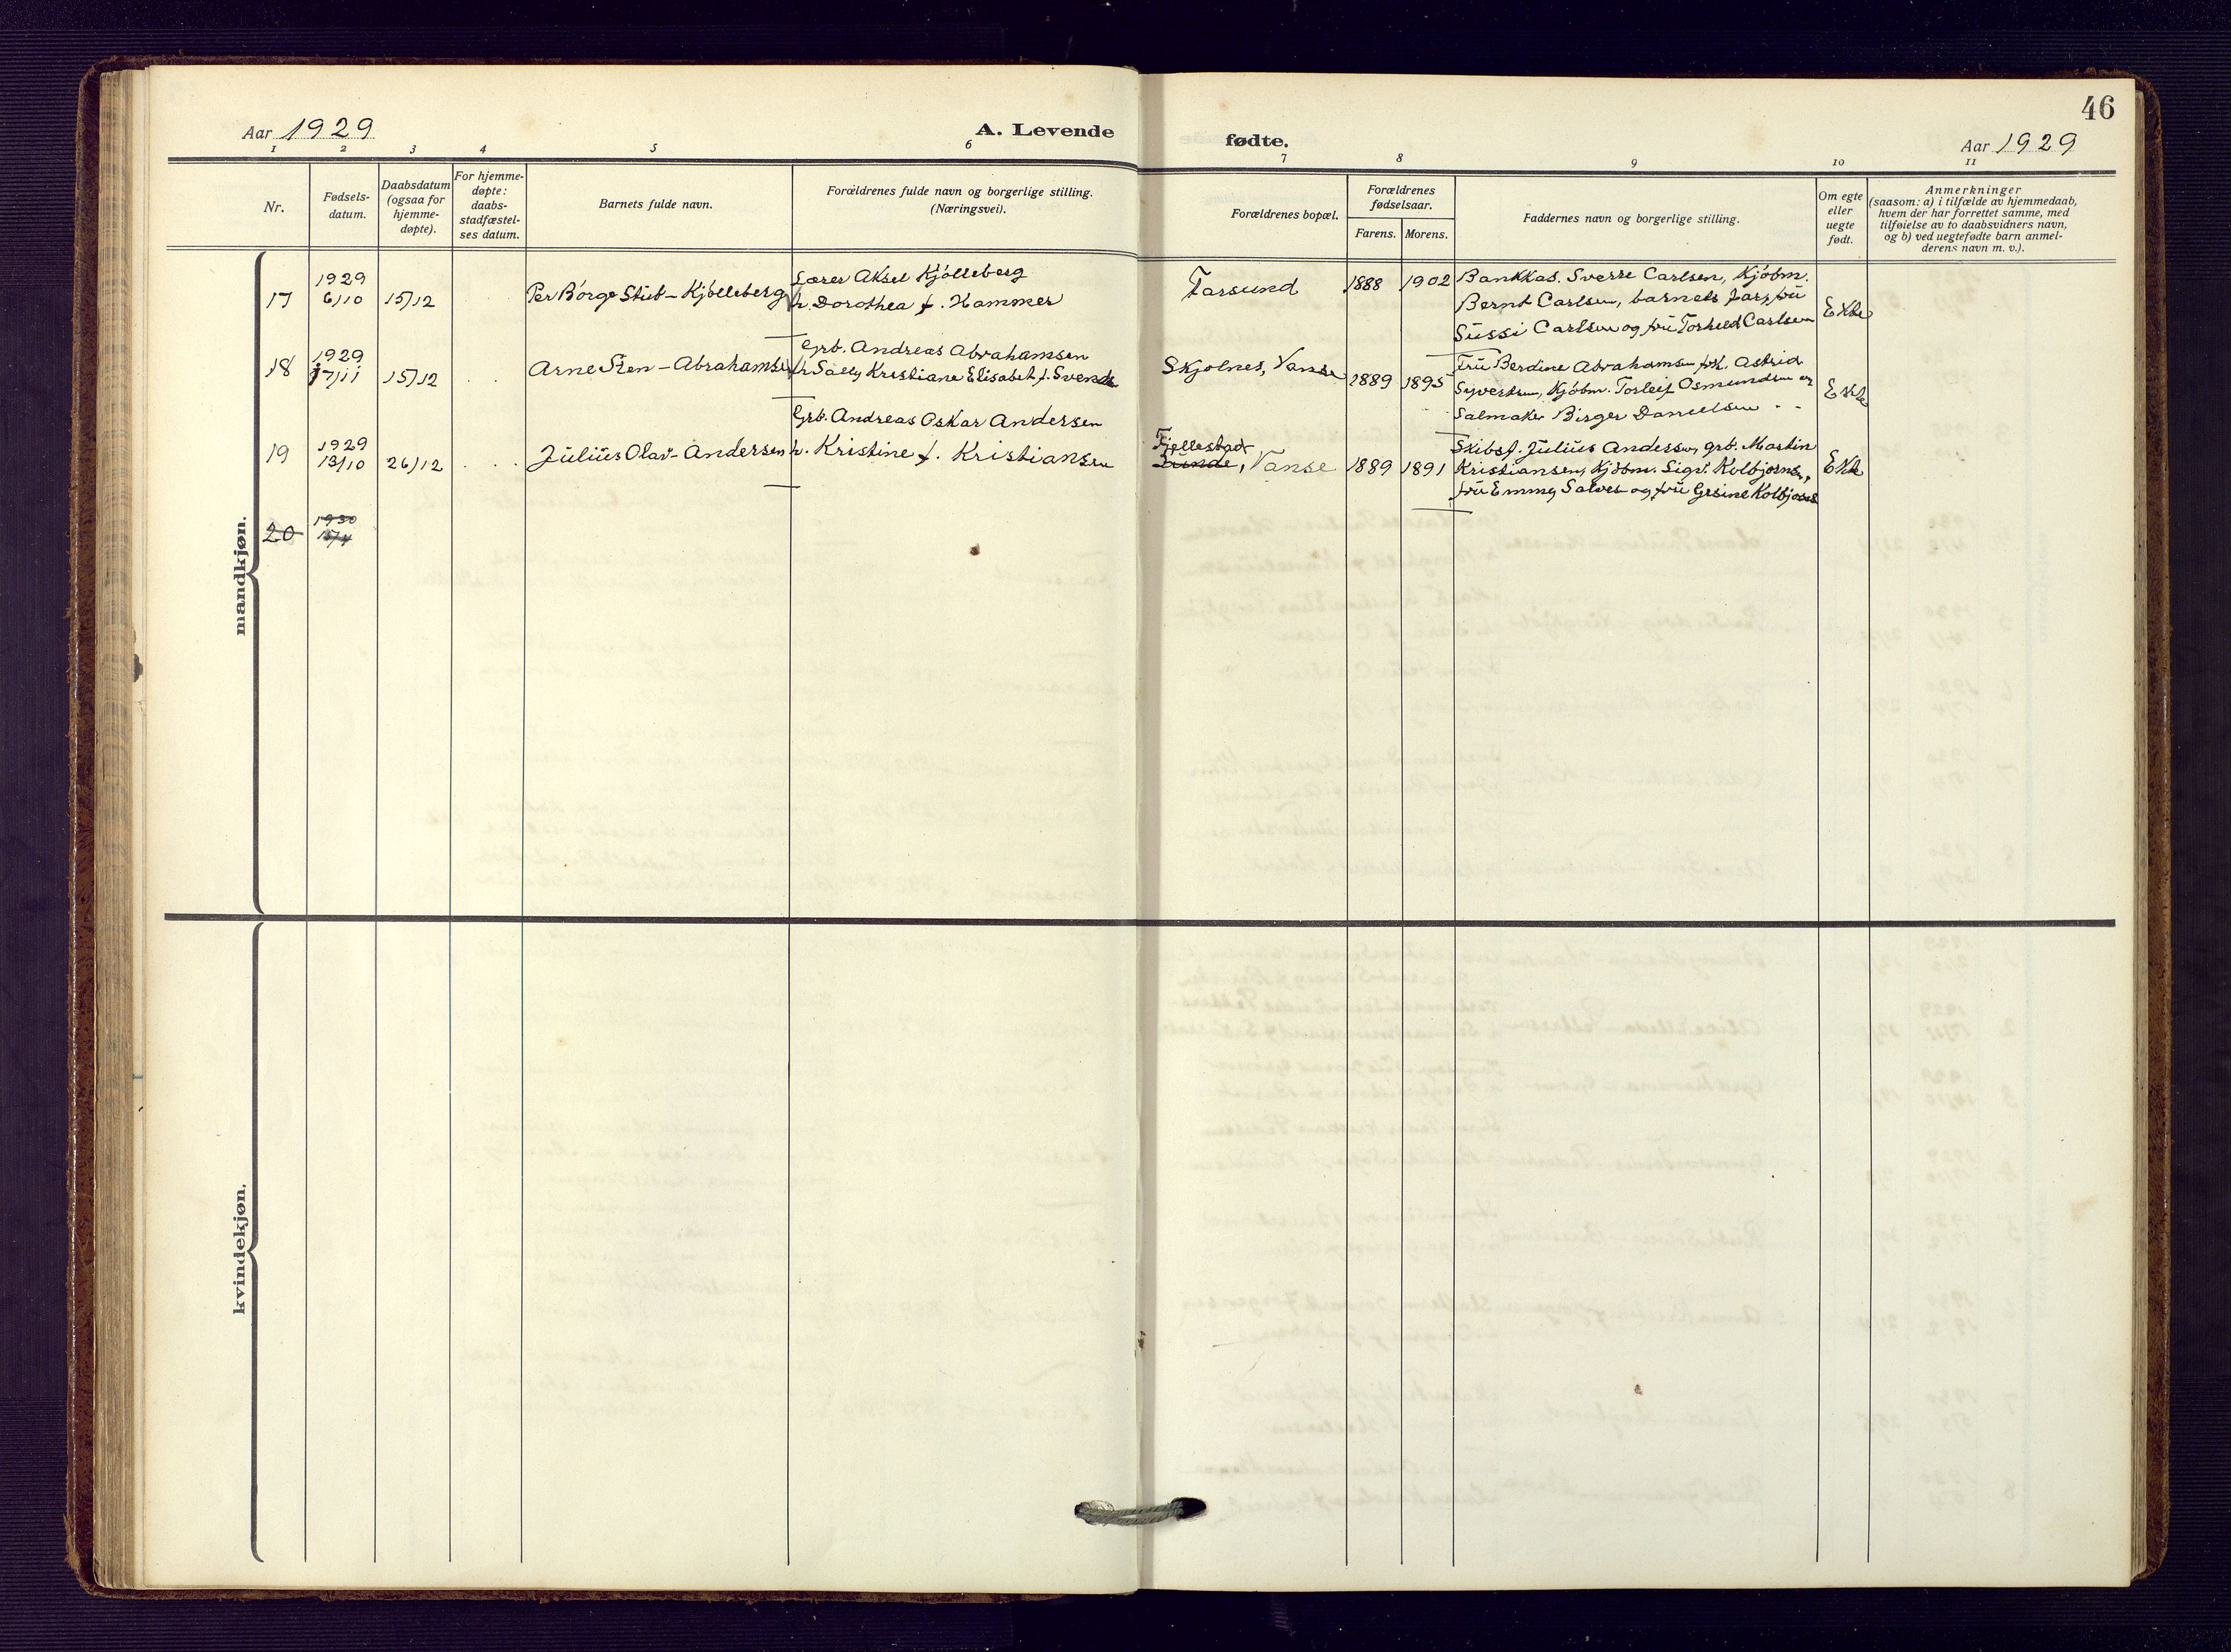 46
Aar 1929
A. Levende
fødte.
Aar 1929
1 2 3 4 5 6 7 8 9 10 11
Nr.
Fødsels-
datum.
Daabsdatum
(ogsaa for
hjemme-
døpte).
For hjemme-
døpte:
daabs-
stadfæstel-
ses datum.
Barnets fulde navn.
Forældrenes fulde navn og borgerlige stilling.
(Næringsvei).
Forældrenes bopæl.
Forældrenes
fødselsaar.
Farens. Morens.
Faddernes navn og borgerlige stilling.
Om egte
eller
uegte
født.
Anmerkninger
(saasom: a) i tilfælde av hjemmedaab,
hvem der har forrettet samme, med
tilføielse av to daabsvidners navn,
og b) ved uegtefødte barn anmel-
derens navn m. v.).
mandkjøn.
17
1929
6/10
15/12
Per Börge Stub-Kjölleberg
Lærer Aksel Kjölleberg
h. Dorothea f. Hammer
Farsund
1888
1902
Bankkas. Sverre Carlsen, Kjöbm.
Bernt Carlsen, barnets far, frü
Süssi Carlsen og frü Torhild Carlsen
Ekte
18
1929
17/11
15/12
Arne Sten-Abrahamsen
Grb. Andreas Abrahamsen
h. Sally Kristiane Elisabet f. Svends
Skjolnes, Vanse
1889
1895
Frü Berdine Abrahamsen, frk. Astrid
Syvertsen, Kjöbm. Torleif Osmundsen og
Salmaker Birger Danielsen
Ekte
19
1929
13/10
26/12
Jülius Olav-Andersen
Grb. Andreas Oskar Andersen
h. Kristine f. Kristiansen
Fjellestad
Sünde, Vanse
1889
1891
Skibsf. Jülius Andersen, grb. Martin
Kristiansen, Kjöbm. Sigv. Kolbjørnsen,
frü Emmy Salves og frü Gesine Kolbjørns
Ekte
20
1930
kvindekjøn.